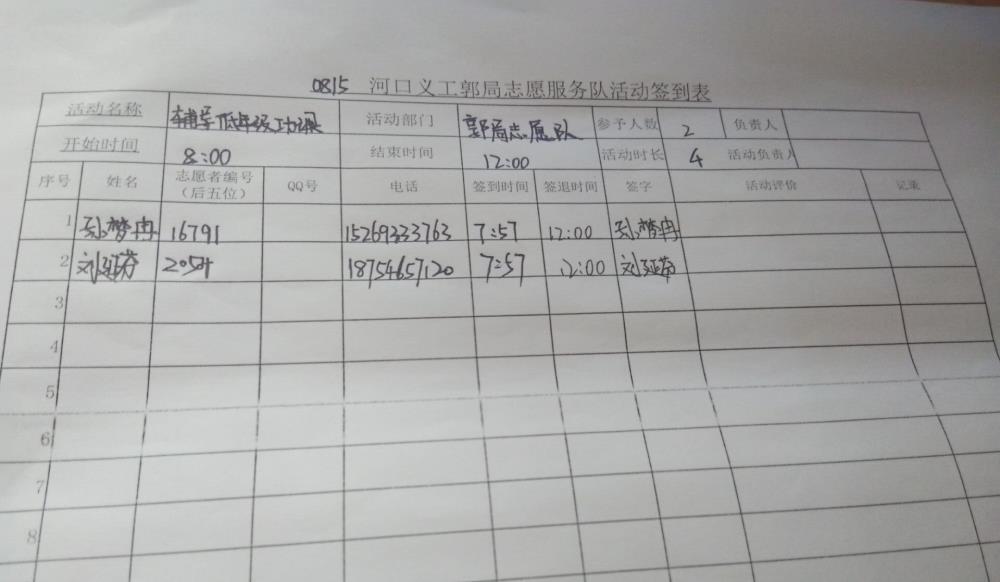 0815 河口义工郭局志愿服务队活动签到表
活动名称 辅导低年级功课 活动部门 郭局志愿队 参予人数 2 负责人
开始时间 8:00 结束时间 12:00 活动时长 4 活动负责人
序号 姓名 志愿者编号（后五位） QQ号 电话 签到时间 签退时间 签字 活动评价 记录
1 孙梦冉 16791 15269333763 7:57 12:00 孙梦冉
2 刘延芬 18754657120 7:57 12:00 刘延芬
3
4
5
6
7
8